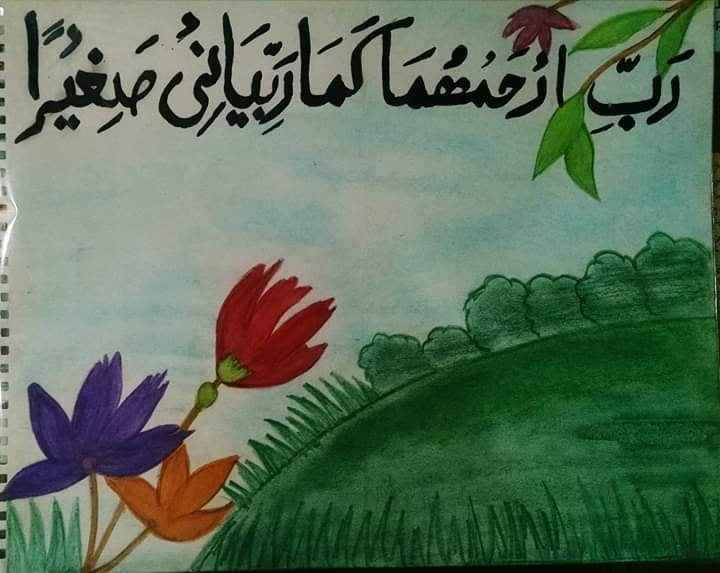 رَبِّ ارْحَمْهُمَا كَمَا رَبَّيَانِیْ صَغِيْرًا